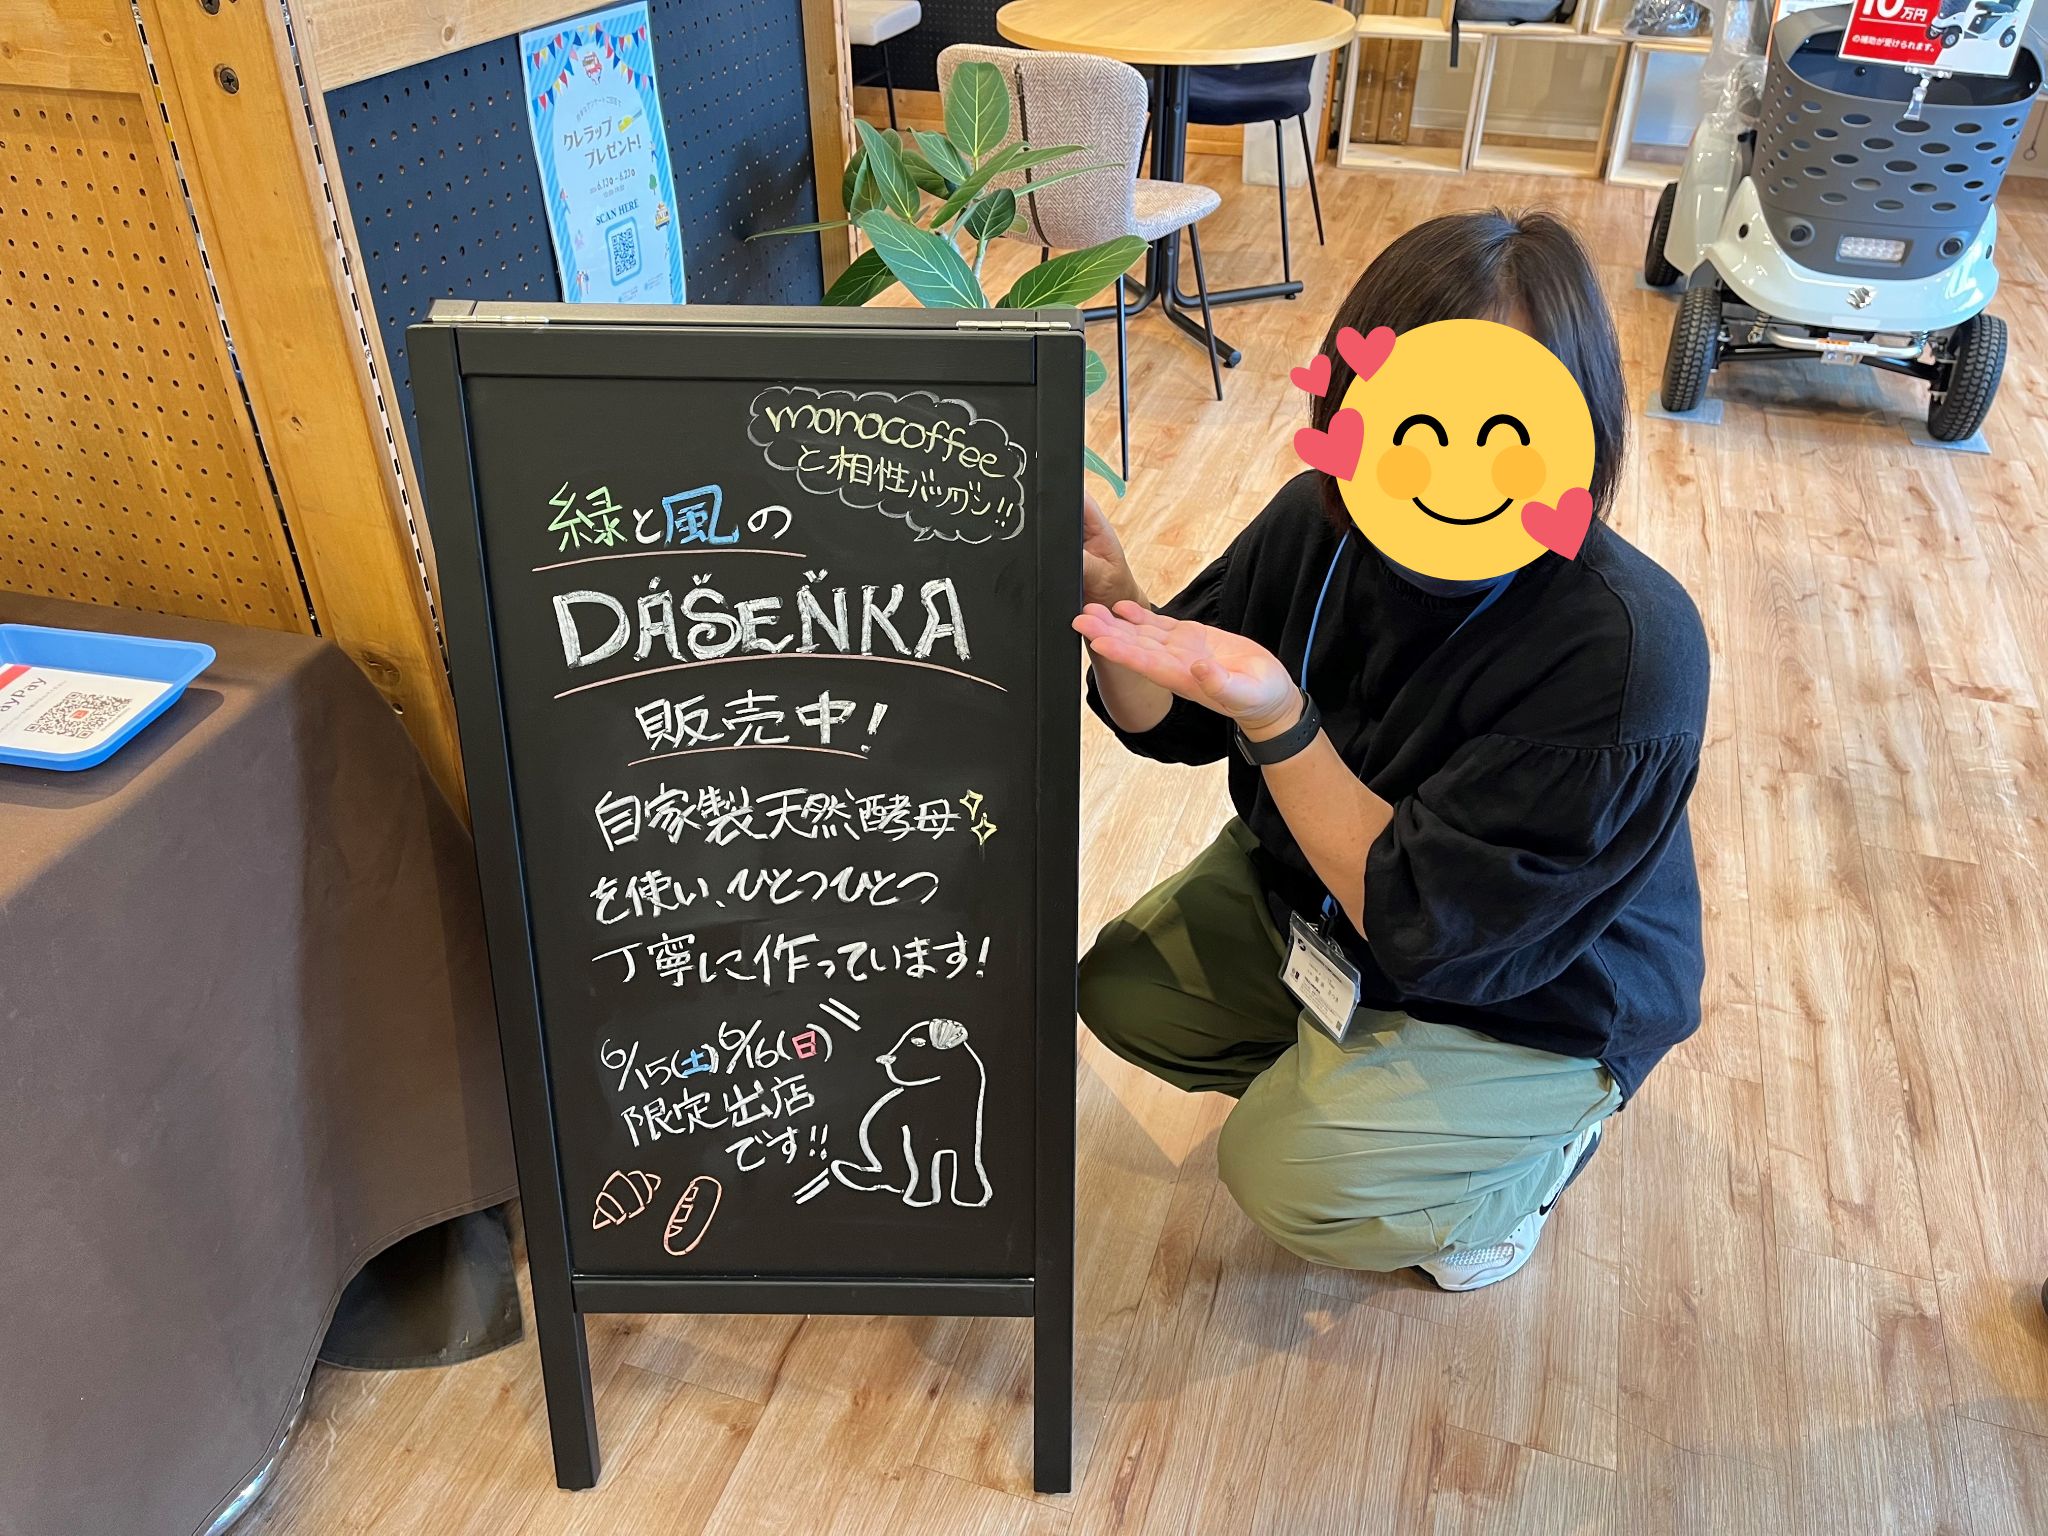 monocoffee
と相性バツグン!!
緑と風の
DÁŠEŇKA
販売中!
自家製天然酵母
を使い、ひとつひとつ
丁寧に作っています!
6/15(土)6/16(日)
限定出店
です!!
クレラップ
プレゼント!
6.13 - 6.23
SCAN HERE
ayPay
10万円
の補助が受けられます。